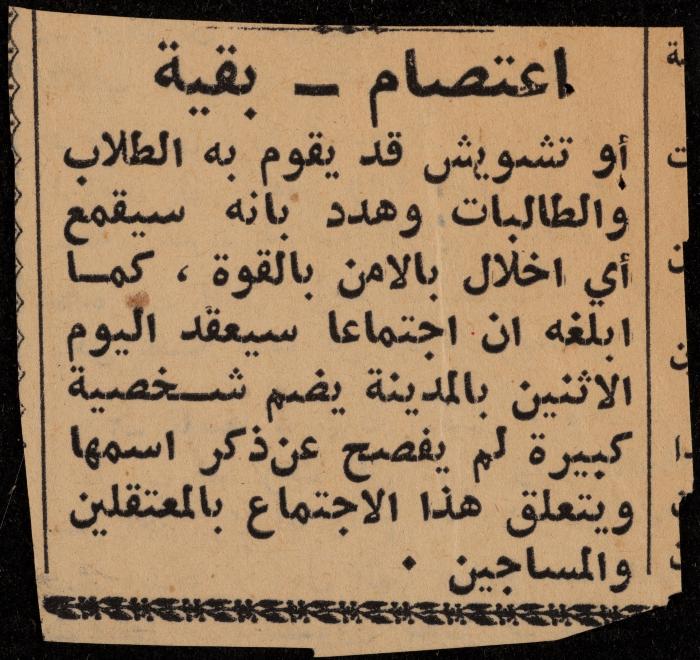 اعتصام — بقية
أو تشويش قد يقوم به الطلاب
والطالبات وهدد بانه سيقمع
أي اخلال بالامن بالقوة ، كمـا
ابلغه ان اجتماعا سيعقد اليوم
الاثنين بالمدينة يضم شـخصية
كبيرة لم يفصح عن ذكر اسمها
ويتعلق هذا الاجتماع بالمعتقلين
والمساجين .